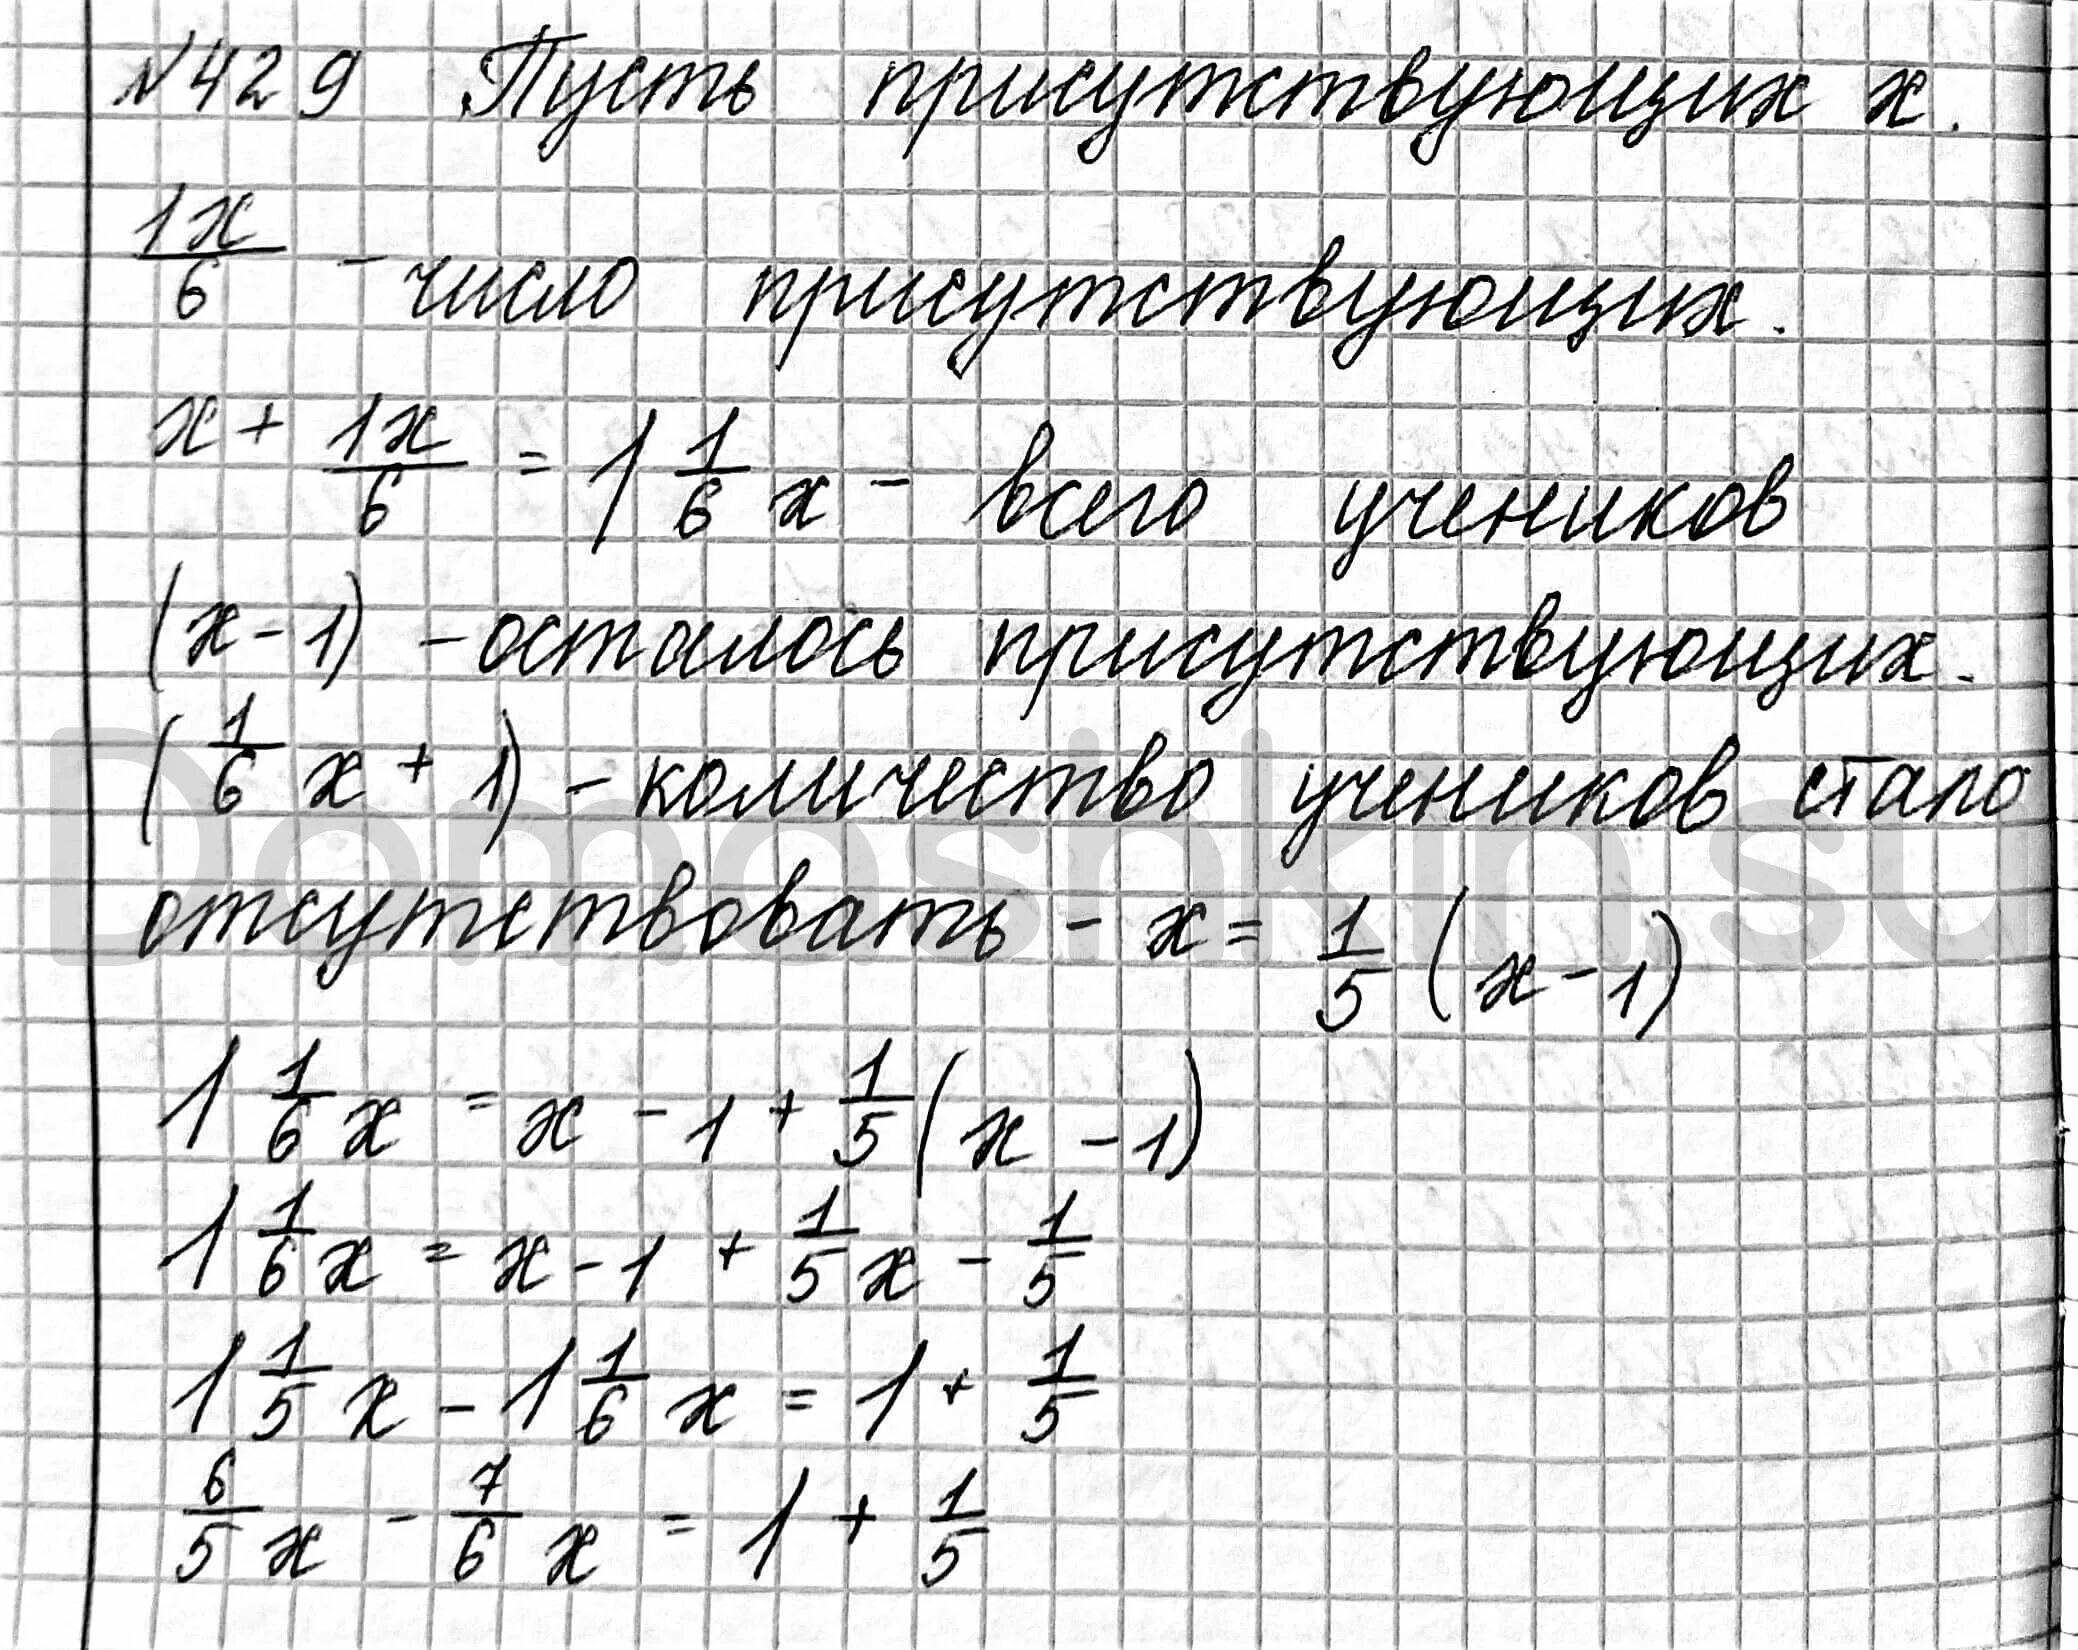 №429 Пусть присутствующих х.
1х/6 - число присутствующих.
х + 1х/6 = 1 1/6 х - всего учеников
(х - 1) - осталось присутствующих.
(1/6 х + 1) - количество учеников стало
отсутствовать - х = 1/5 (х - 1)
1 1/6 х = х - 1 + 1/5 (х - 1)
1 1/6 х = х - 1 + 1/5 х - 1/5
1 1/5 х - 1 1/6 х = 1 + 1/5
6/5 х - 7/6 х = 1 + 1/5
Domashkin.su